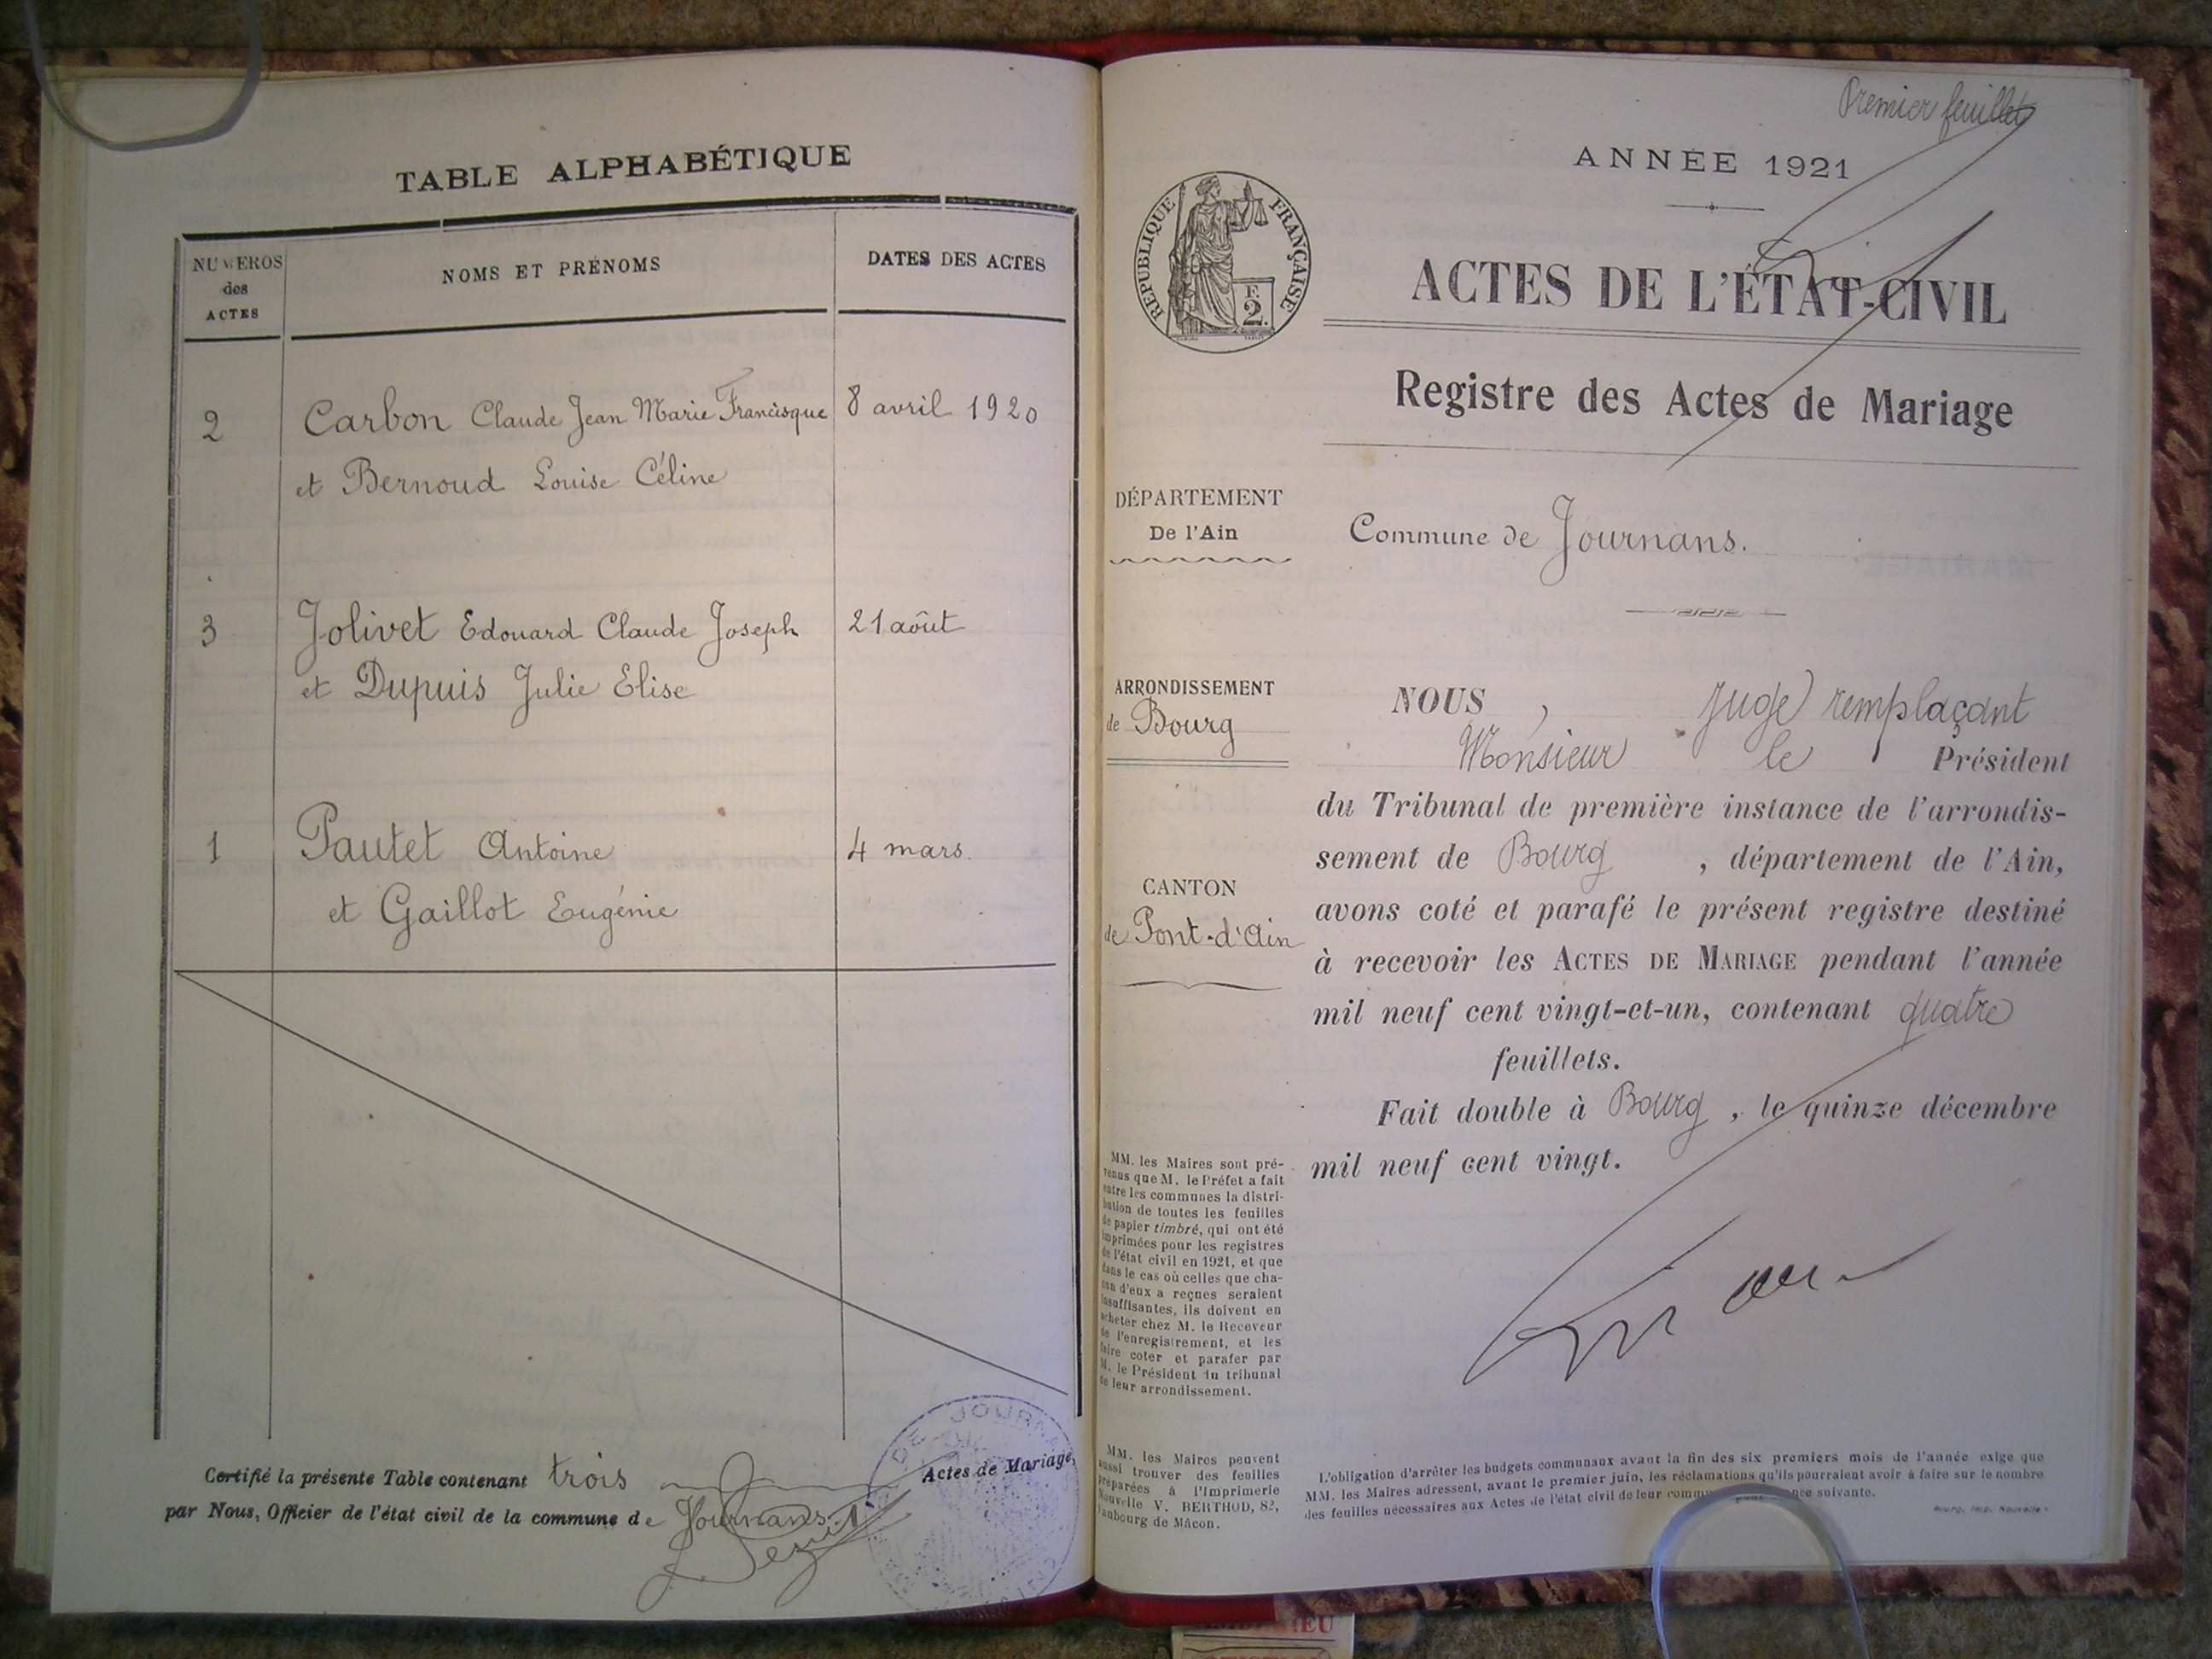 TABLE ALPHABÉTIQUE
NUMEROS
des
ACTES
NOMS ET PRÉNOMS
DATES DES ACTES
2
Carbon Claude Jean Marie Francisque
8 avril 1920
et Bernoud Louise Céline
3
Jolivet Edouard Claude Joseph
21 août
et Dupuis Julie Elise
1
Pautet Antoine
4 mars.
et Gaillot Eugénie
Certifié la présente Table contenant trois Actes de Mariage,
par Nous, Officier de l'état civil de la commune de Journans.
Premier feuillet
ANNÉE 1921
REPUBLIQUE FRANÇAISE
F.
2.
ACTES DE L'ÉTAT-CIVIL
Registre des Actes de Mariage
DÉPARTEMENT
De l'Ain
Commune de Journans.
ARRONDISSEMENT
de Bourg
CANTON
de Pont-d'Ain
NOUS, Juge remplaçant
Monsieur le Président
du Tribunal de première instance de l'arrondis-
sement de Bourg, département de l'Ain,
avons coté et parafé le présent registre destiné
à recevoir les ACTES DE MARIAGE pendant l'année
mil neuf cent vingt-et-un, contenant quatre
feuillets.
Fait double à Bourg, le quinze décembre
mil neuf cent vingt.
MM. les Maires sont pré-
venus que M. le Préfet a fait
entre les communes la distri-
bution de toutes les feuilles
de papier timbré, qui ont été
imprimées pour les registres
de l'état civil en 1921, et que
dans le cas où celles que cha-
cun d'eux a reçues seraient
insuffisantes, ils doivent en
acheter chez M. le Receveur
de l'enregistrement, et les
faire coter et parafer par
M. le Président du tribunal
de leur arrondissement.
MM. les Maires peuvent
aussi trouver des feuilles
préparées à l'Imprimerie
Nouvelle V. BERTHOD, 82,
faubourg de Mâcon.
L'obligation d'arrêter les budgets communaux avant la fin des six premiers mois de l'année exige que
MM. les Maires adressent, avant le premier juin, les réclamations qu'ils pourraient avoir à faire sur le nombre
des feuilles nécessaires aux Actes de l'état civil de leur suivante.
Bourg, Imp. Nouvelle